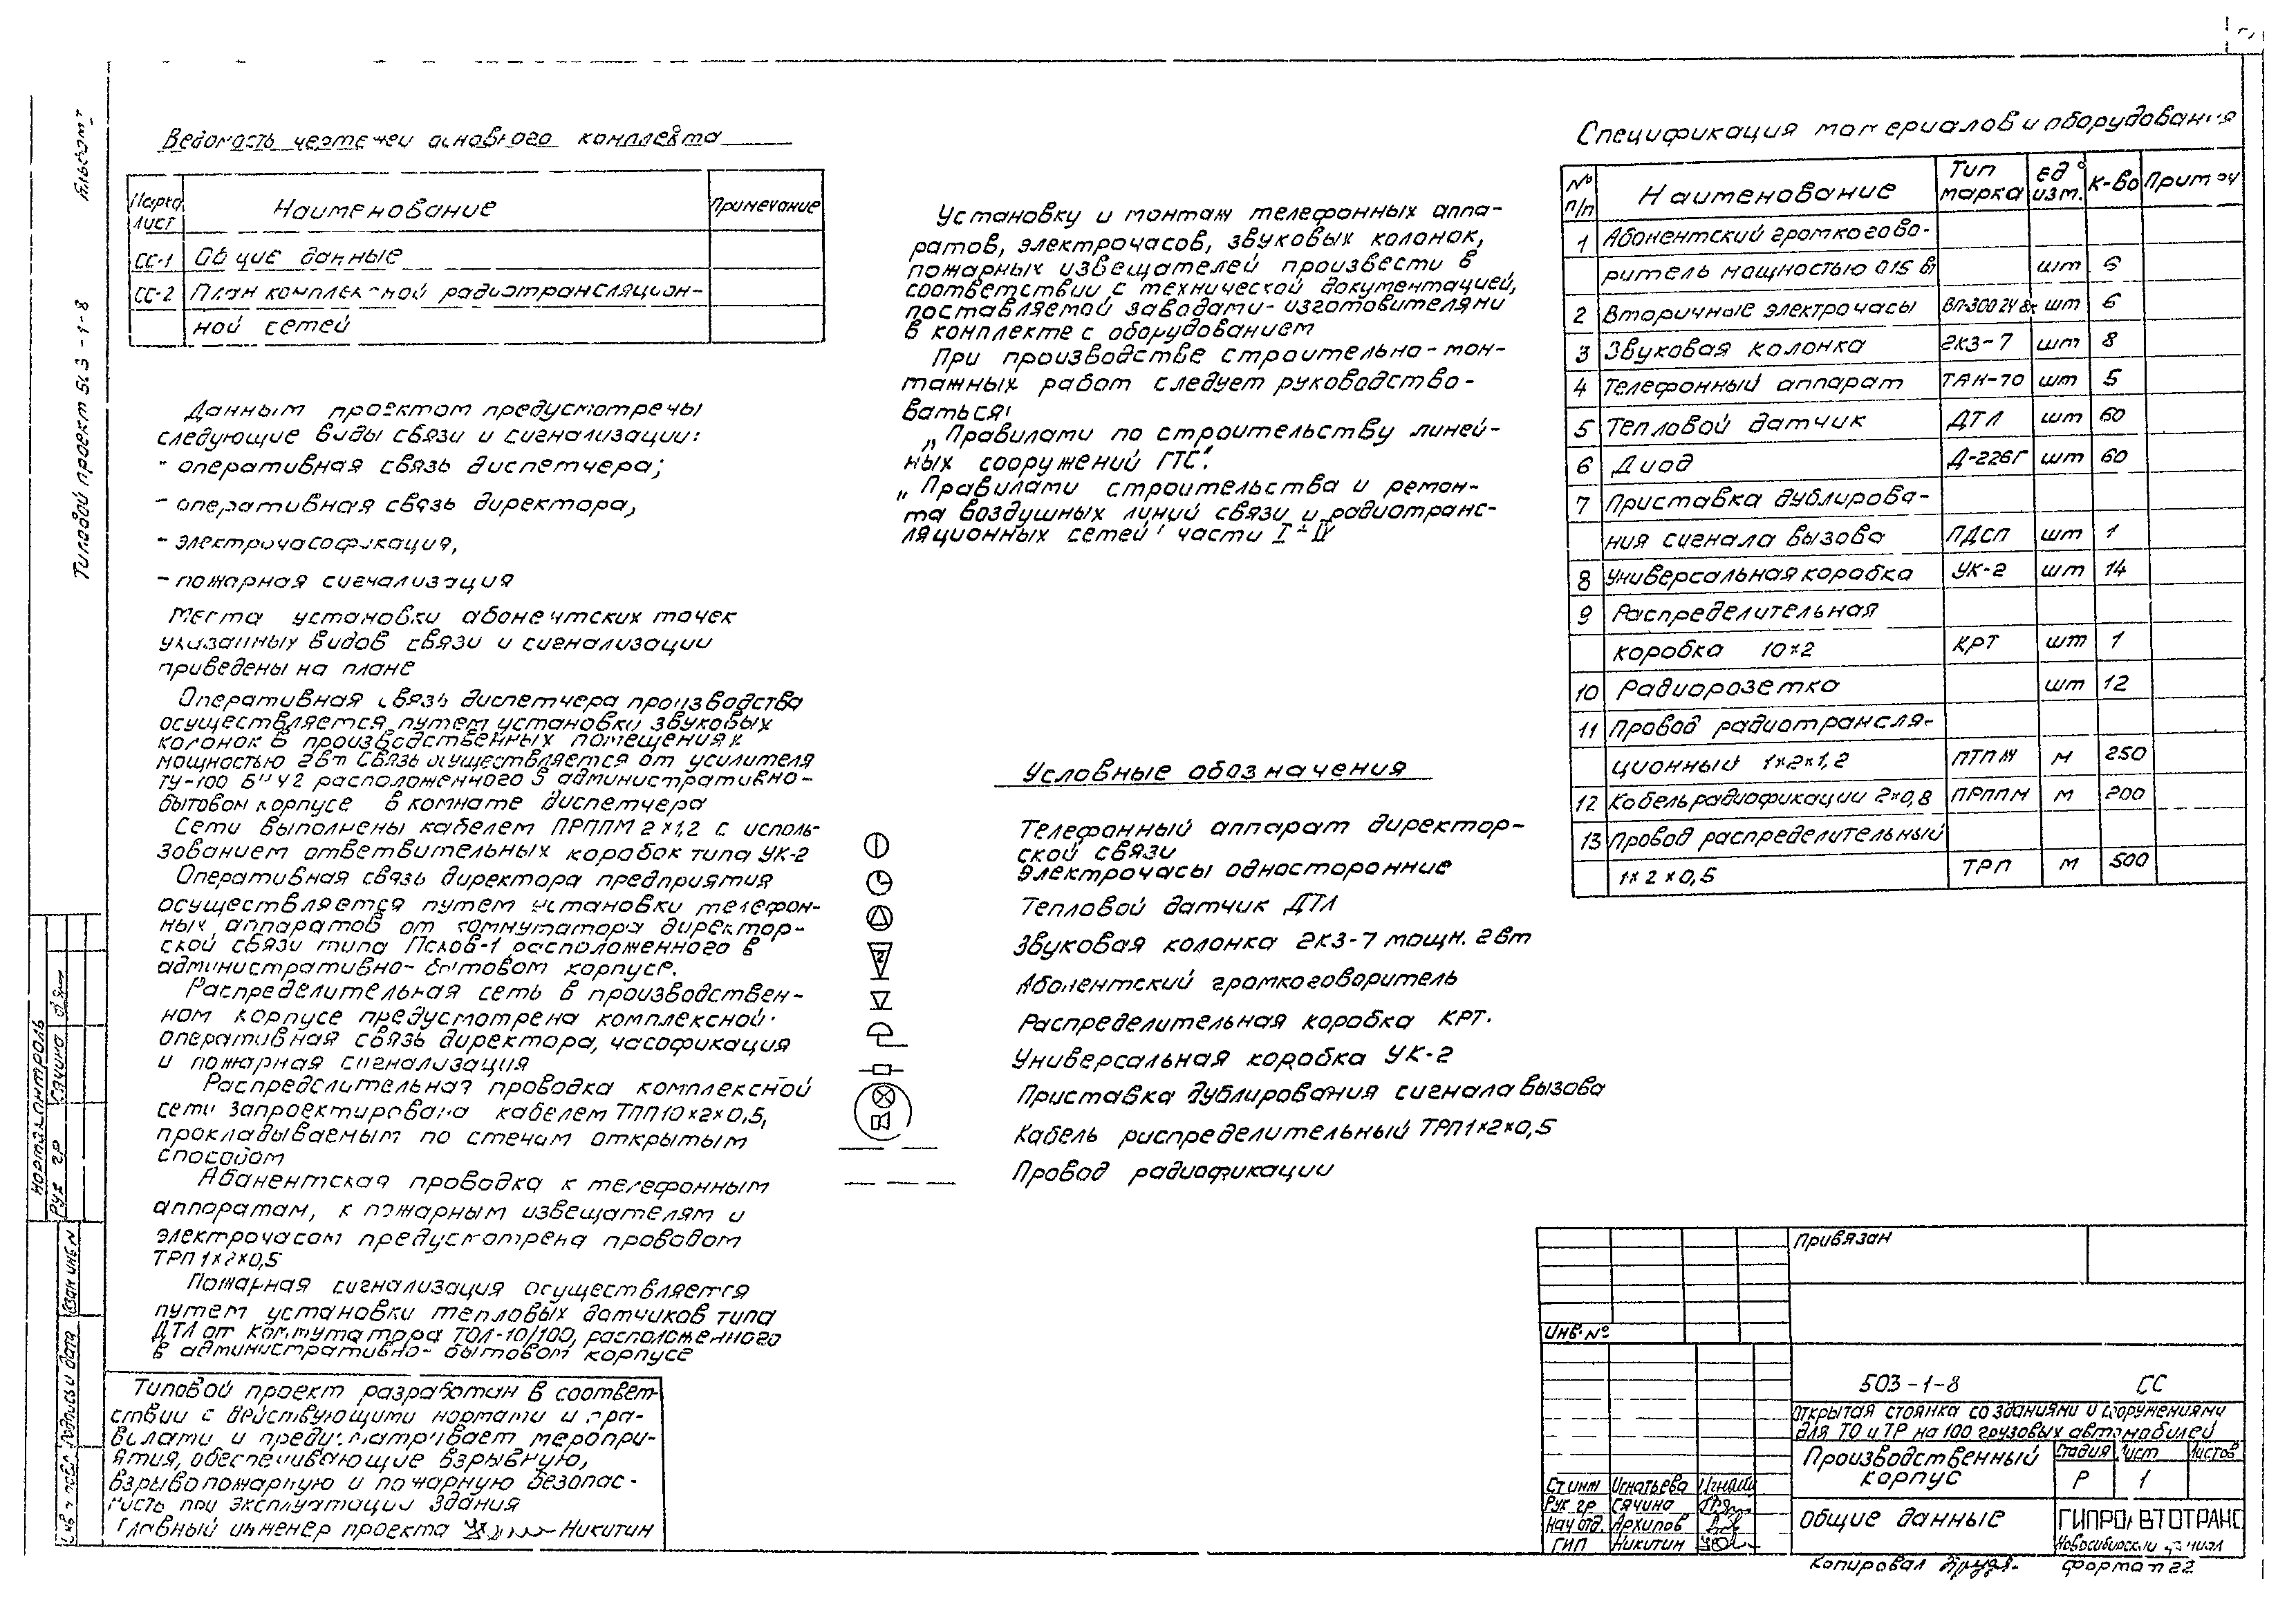 Альбом 1
Типовой проект 503-1-8
Ведомость чертежей основного комплекта
Марка лист
Наименование
Примечание
СС-1 Общие данные
СС-2 План комплексной радиотрансляцион-
ной сетей
Данным проектом предусмотрены
следующие виды связи и сигнализации:
- оперативная связь диспетчера;
- оперативная связь директора,
- электрочасофикация,
- пожарная сигнализация
Места установки абонентских точек
указанных видов связи и сигнализации
приведены на плане
Оперативная связь диспетчера производства
осуществляется путем установки звуковых
колонок в производственных помещениях
мощностью 2вт Связь осуществляется от усилителя
ТУ-100 расположенного в административно-
бытовом корпусе в комнате диспетчера
Сети выполнены кабелем ПРППМ 2×1,2 с исполь-
зованием ответвительных коробок типа УК-2
Оперативная связь директора предприятия
осуществляется путем установки телефон-
ных аппаратов от коммутатора директор-
ской связи типа Псков-1 расположенного в
административно-бытовом корпусе.
Распределительная сеть в производствен-
ном корпусе предусмотрена комплексной:
оперативная связь директора, часофикация
и пожарная сигнализация
Распределительная проводка комплексной
сети запроектирована кабелем ТПП10×2×0,5,
прокладываемым по стенам открытым
способом
Абонентская проводка к телефонным
аппаратам, к пожарным извещателям и
электрочасом предусмотрена проводом
ТРП 1×2×0,5
Пожарная сигнализация осуществляется
путем установки тепловых датчиков типа
ДТЛ от коммутатора ТОЛ-10/100, расположенного
в административно-бытовом корпусе
Типовой проект разработан в соответ-
ствии с действующими нормами и пра-
вилами и предусматривает меропри-
ятия, обеспечивающие взрывную,
взрывопожарную и пожарную безопас-
ность при эксплуатации здания
Главный инженер проекта Никитин
Установку и монтаж телефонных аппа-
ратов, электрочасов, звуковых колонок,
пожарных извещателей произвести в
соответствии с технической документацией,
поставляемой заводами-изготовителями
в комплекте с оборудованием
При производстве строительно-мон-
тажных работ следует руководство-
ваться:
„Правилами по строительству линей-
ных сооружений ГТС".
„Правилами строительства и ремон-
та воздушных линий связи и радиотранс-
ляционных сетей" части I-IV
Условные обозначения
Телефонный аппарат директор-
ской связи
Электрочасы односторонние
Тепловой датчик ДТЛ
2
Звуковая колонка 2КЗ-7 мощн. 2вт
Абонентский громкоговоритель
Распределительная коробка КРТ.
Универсальная коробка УК-2
Приставка дублирования сигнала вызова
Кабель распределительный ТРП1×2×0,5
Провод радиофикации
Спецификация материалов и оборудования
№ п/п
Наименование
Тип марка
ед. изм.
К-во
Примеч
1 Абонентский громкогово-
ритель мощностью 0,15 вт шт 6
2 Вторичные электрочасы шт 6
3 Звуковая колонка 2КЗ-7 шт 8
4 Телефонный аппарат ТАН-70 шт 5
5 Тепловой датчик ДТЛ шт 60
6 Диод Д-226Г шт 60
7 Приставка дублирова-
ния сигнала вызова ПДСП шт 1
8 Универсальная коробка УК-2 шт 14
9 Распределительная
коробка 10×2 КРТ шт 1
10 Радиорозетка шт 12
11 Провод радиотрансля-
ционный 1×2×1,2 ПТПЖ м 250
12 Кабель радиофикации 2×0,8 ПРППМ м 200
13 Провод распределительный
1×2×0,5 ТРП м 500
Привязан
Инв. №
503-1-8 СС
Открытая стоянка со зданиями и сооружениями
для ТО и ТР на 100 грузовых автомобилей
Производственный
корпус
Стадия Лист Листов
Р 1
Общие данные
ГИПРОАВТОТРАНС
Новосибирский филиал
Ст инж Игнатьева
Рук гр Сячина
Нач отд. Архипов
ГИП Никитин
Копировал
формат 22
Нормалконтроль
Рук гр Сячина
Взам инв N
Подпись и дата
Инв N подл